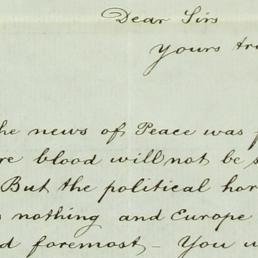 Dear Sirs
Yours tr
he news of Peace was f
re blood will not be s
But the political hor
s nothing and Europe
d foremost – You w